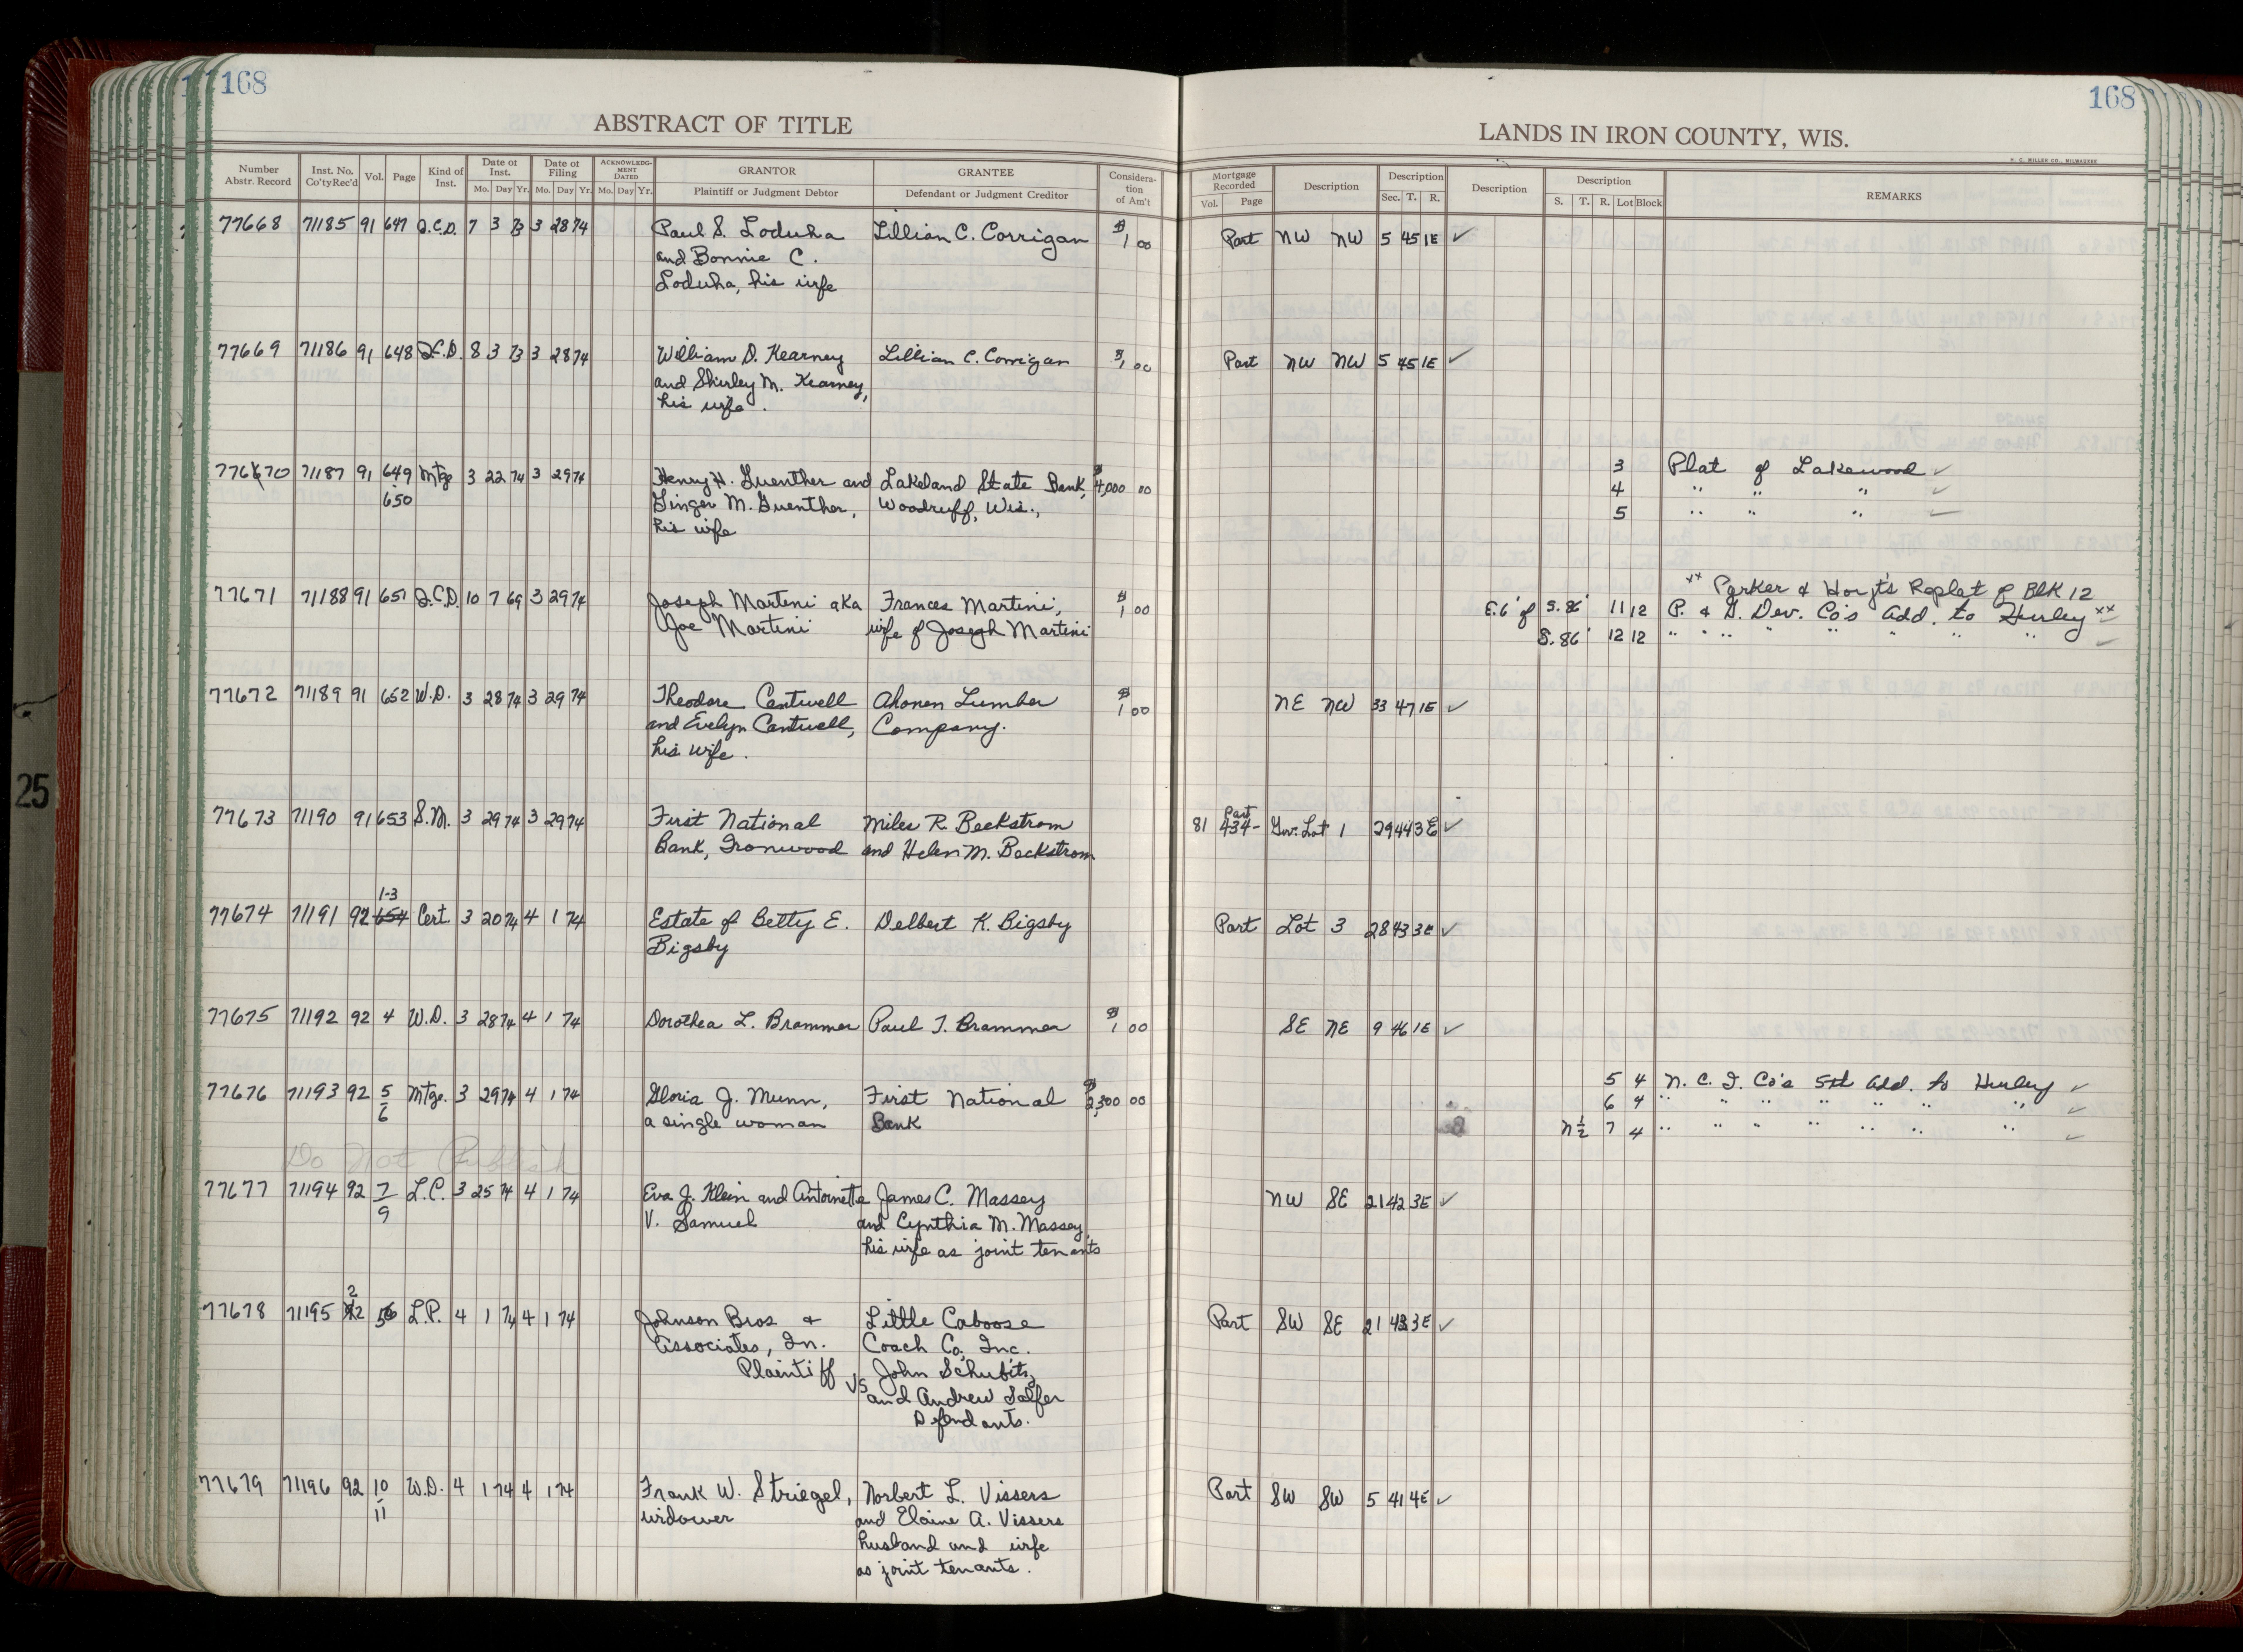 168
168
ABSTRACT OF TITLE
LANDS IN IRON COUNTY, WIS.
H. C. MILLER CO., MILWAUKEE
Number Abstr. Record Inst. No. Co'ty Rec'd Vol. Page Kind of Inst. Date of Inst. Mo. Day Yr. Date of Filing Mo. Day Yr. ACKNOWLEDGMENT DATED Mo. Day Yr. GRANTOR Plaintiff or Judgment Debtor GRANTEE Defendant or Judgment Creditor Consideration of Am't
Mortgage Recorded Vol. Page Description Description Sec. T. R. Description Description S. T. R. Lot Block REMARKS
77668 71185 91 647 Q.C.D. 7 3 73 3 28 74 Paul S. Loduha Lillian C. Corrigan $1 00 Part NW NW 5 45 1E ✓
and Bonnie C.
Loduha, his wife
77669 71186 91 648 Q.C.D. 8 3 73 3 28 74 William D. Kearney Lillian C. Corrigan $1 00 Part NW NW 5 45 1E ✓
and Shirley M. Kearney,
his wife.
77670 71187 91 649 Mtge 3 22 74 3 29 74 Henry H. Guenther and Lakeland State Bank, $4,000 00 3 Plat of Lakewood ✓
650 Ginger M. Guenther, Woodruff, Wis., 4 " " " ✓
his wife 5 " " " ✓
** Parker & Hoyt's Replat of Blk 12
77671 71188 91 651 Q.C.D. 10 7 69 3 29 74 Joseph Martini aka Frances Martini, $1 00 E.6' of S.86' 11 12 P. & G. Dev. Co's Add. to Hurley **
Joe Martini wife of Joseph Martini S.86' 12 12 " " " " " " " " ✓
77672 71189 91 652 W.D. 3 28 74 3 29 74 Theodore Cantwell Ahonen Lumber $1 00 NE NW 33 47 1E ✓
and Evelyn Cantwell, Company.
his wife.
77673 71190 91 653 S.M. 3 29 74 3 29 74 First National Miles R. Beckstrom 81 434- Part Gov. Lot 1 29 44 3E ✓
Bank, Ironwood and Helen M. Beckstrom
1-3
77674 71191 92 654 Cert. 3 20 74 4 1 74 Estate of Betty E. Delbert K. Bigsby Part Lot 3 28 43 3E ✓
Bigsby
77675 71192 92 4 W.D. 3 28 74 4 1 74 Dorothea L. Brammer Paul T. Brammer $1 00 SE NE 9 46 1E ✓
77676 71193 92 5 Mtge. 3 29 74 4 1 74 Gloria J. Munn, First National $2,300 00 5 4 N. C. I. Co's 5th Add. to Hurley ✓
6 a single woman Bank 6 4 " " " " " " " ✓
N½ 7 4 " " " " " " " ✓
Do Not Publish
77677 71194 92 7 L.C. 3 25 74 4 1 74 Eva J. Klein and Antoinette James C. Massey NW SE 21 42 3E ✓
9 V. Samuel and Cynthia M. Massey,
his wife as joint tenants
2
77678 71195 2 56 L.P. 4 1 74 4 1 74 Johnson Bros & Little Caboose Part SW SE 21 43 3E ✓
Associates, In. Coach Co, Inc.
Plaintiff vs John Schubitz
and Andrew Salfer
Defendants.
77679 71196 92 10 W.D. 4 1 74 4 1 74 Frank W. Striegel, Norbert L. Vissers Part SW SW 5 41 4E ✓
11 widower and Elaine A. Vissers
husband and wife
as joint tenants.
25